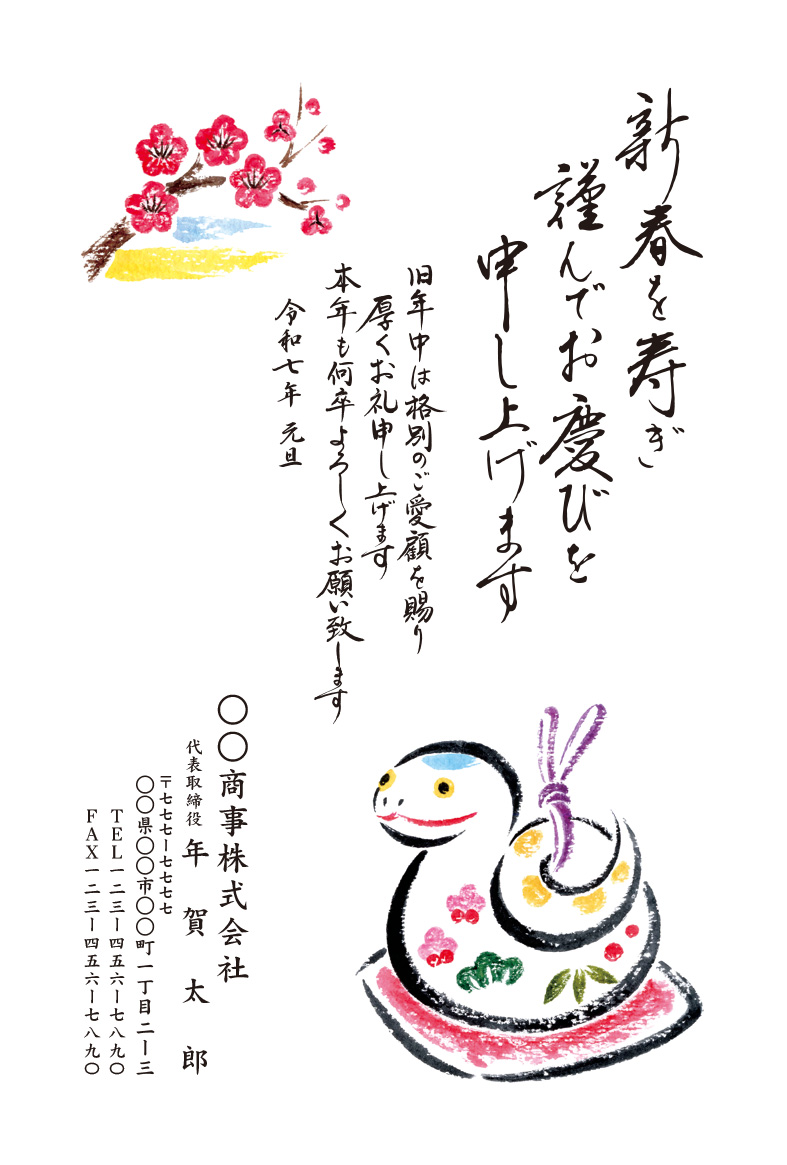 新春を寿ぎ
謹んでお慶びを
申し上げます
旧年中は格別のご愛顧を賜り
厚くお礼申し上げます
本年も何卒よろしくお願い致します
令和七年 元旦
〇〇商事株式会社
代表取締役 年賀太郎
〒七七七ー七七七七
〇〇県〇〇市〇〇町一丁目二ー三
TEL一二三ー四五六ー七八九〇
FAX一二三ー四五六ー七八九〇